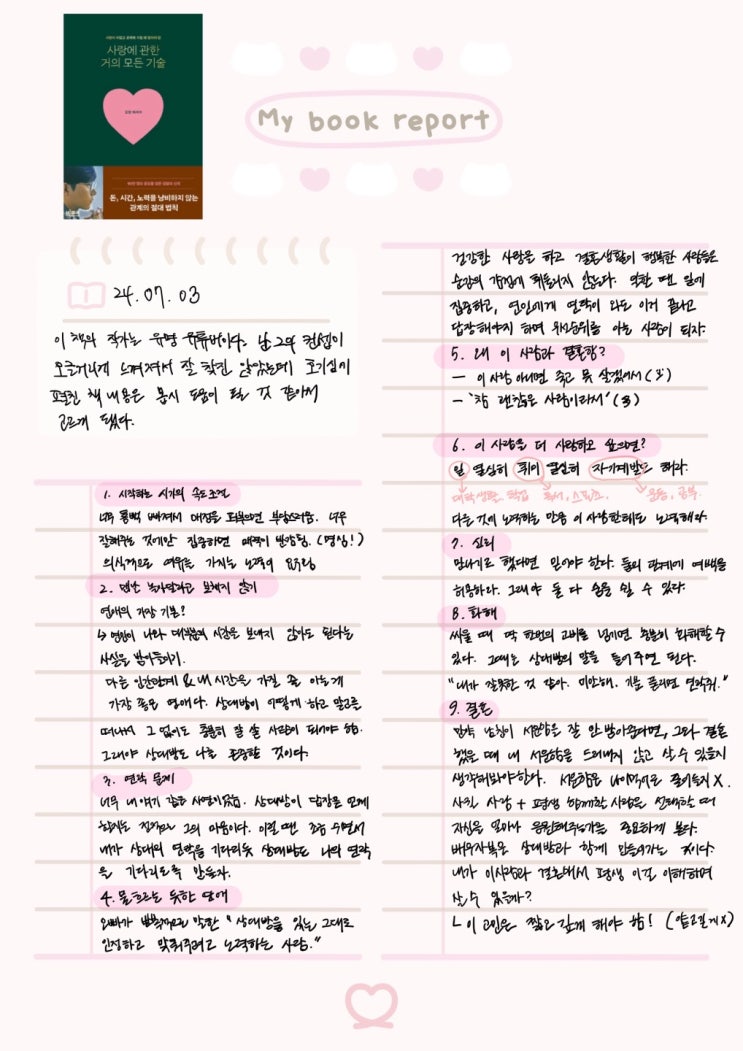 사랑에 관한
거의 모든 기술
돈, 시간, 노력을 낭비하지 않는
관계의 절대 법칙
My book report
24.07.03
이 책의 작가는 유명 유튜버이다. 난 그의 컨셉이
오글거리게 느껴져서 잘 챙긴 않았는데 호기심이
포함된 책 내용은 몹시 도움이 될 것 같아서
고르게 됐다.
1. 시작하는 시기의 속도조절
너무 흠뻑 빠져서 애정을 퍼부으면 부담스러움. 너무
잘해주는 것에만 집중하면 매력이 반감됨. (명심!)
의식적으로 여유를 가지는 노력이 요구됨
2. 맨날 놀아달라고 보채지 않기
연애의 가장 기본?
↳ 연인이 나와 대부분의 시간을 보내지 않아도 된다는
사실을 받아들이기.
다른 인간관계 & 내 시간을 가질 줄 아는게
가장 좋은 연애다. 상대방이 어떻게 하고 말고를
떠나서 그 없이도 충분히 잘 살 사람이 되어야 함.
그래야 상대방도 나를 존중할 것이다.
3. 연락 문제
너무 내 얘기 같은 사연이었음. 상대방이 답장을 언제
할지는 전적으로 그의 마음이다. 이럴 땐 조금 수면서
내가 상대의 연락을 기다리듯 상대방도 나의 연락
을 기다리도록 만들자.
4. 물 흐르는 듯한 연애
오빠가 말한 "상대방을 있는 그대로
인정하고 맞춰주려고 노력하는 사람."
건강한 사랑을 하고 결혼생활이 행복한 사람들은
순간의 감정에 휘둘리지 않는다. 일할 땐 일에
집중하고, 연인에게 연락이 와도 이거 끝나고
답장해야지 하며 우선순위를 아는 사람이 되자.
5. 왜 이 사람과 결혼함?
- 이 사람 아니면 죽고 못 살겠어서 (X)
- '참 괜찮은 사람이라서' (O)
6. 이 사람을 더 사랑하고 싶으면?
일 열심히 취미 열심히 자기계발도 해라.
대학생활, 학업 독서, 스피치.. 운동, 공부.
다른 것에 노력하는 만큼 이 사람한테도 노력해라.
7. 신뢰
만나기로 했다면 믿어야 한다. 둘의 관계에 여백을
허용하라. 그래야 둘 다 숨을 쉴 수 있다.
8. 화해
싸울 때 딱 한번의 고비를 넘기면 충분히 화해할 수
있다. 그때는 상대방의 말을 들어주면 된다.
"내가 잘못한 것 같아. 미안해. 기분 풀리면 연락줘."
9. 결혼
만약 남친이 서운함을 잘 안 받아준다면, 그와 결혼
했을 때 내 서운함을 드러내지 않고 살 수 있을지
생각해봐야한다. 서운함은 나이먹어도 줄어들지 X.
사실 사랑 + 평생 함께할 사람을 선택할 때
자신을 얼마나 응원해주는가를 중요하게 본다.
배우자복은 상대방과 함께 만들어가는 것이다.
내가 이사람과 결혼해서 평생 이걸 이해하며
살 수 있을까?
ㄴ 이 고민은 짧고 깊게 해야 함! (얕고길게X)